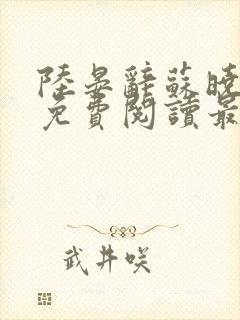 陸晏辭蘇曉
免費閱讀最
武井咲